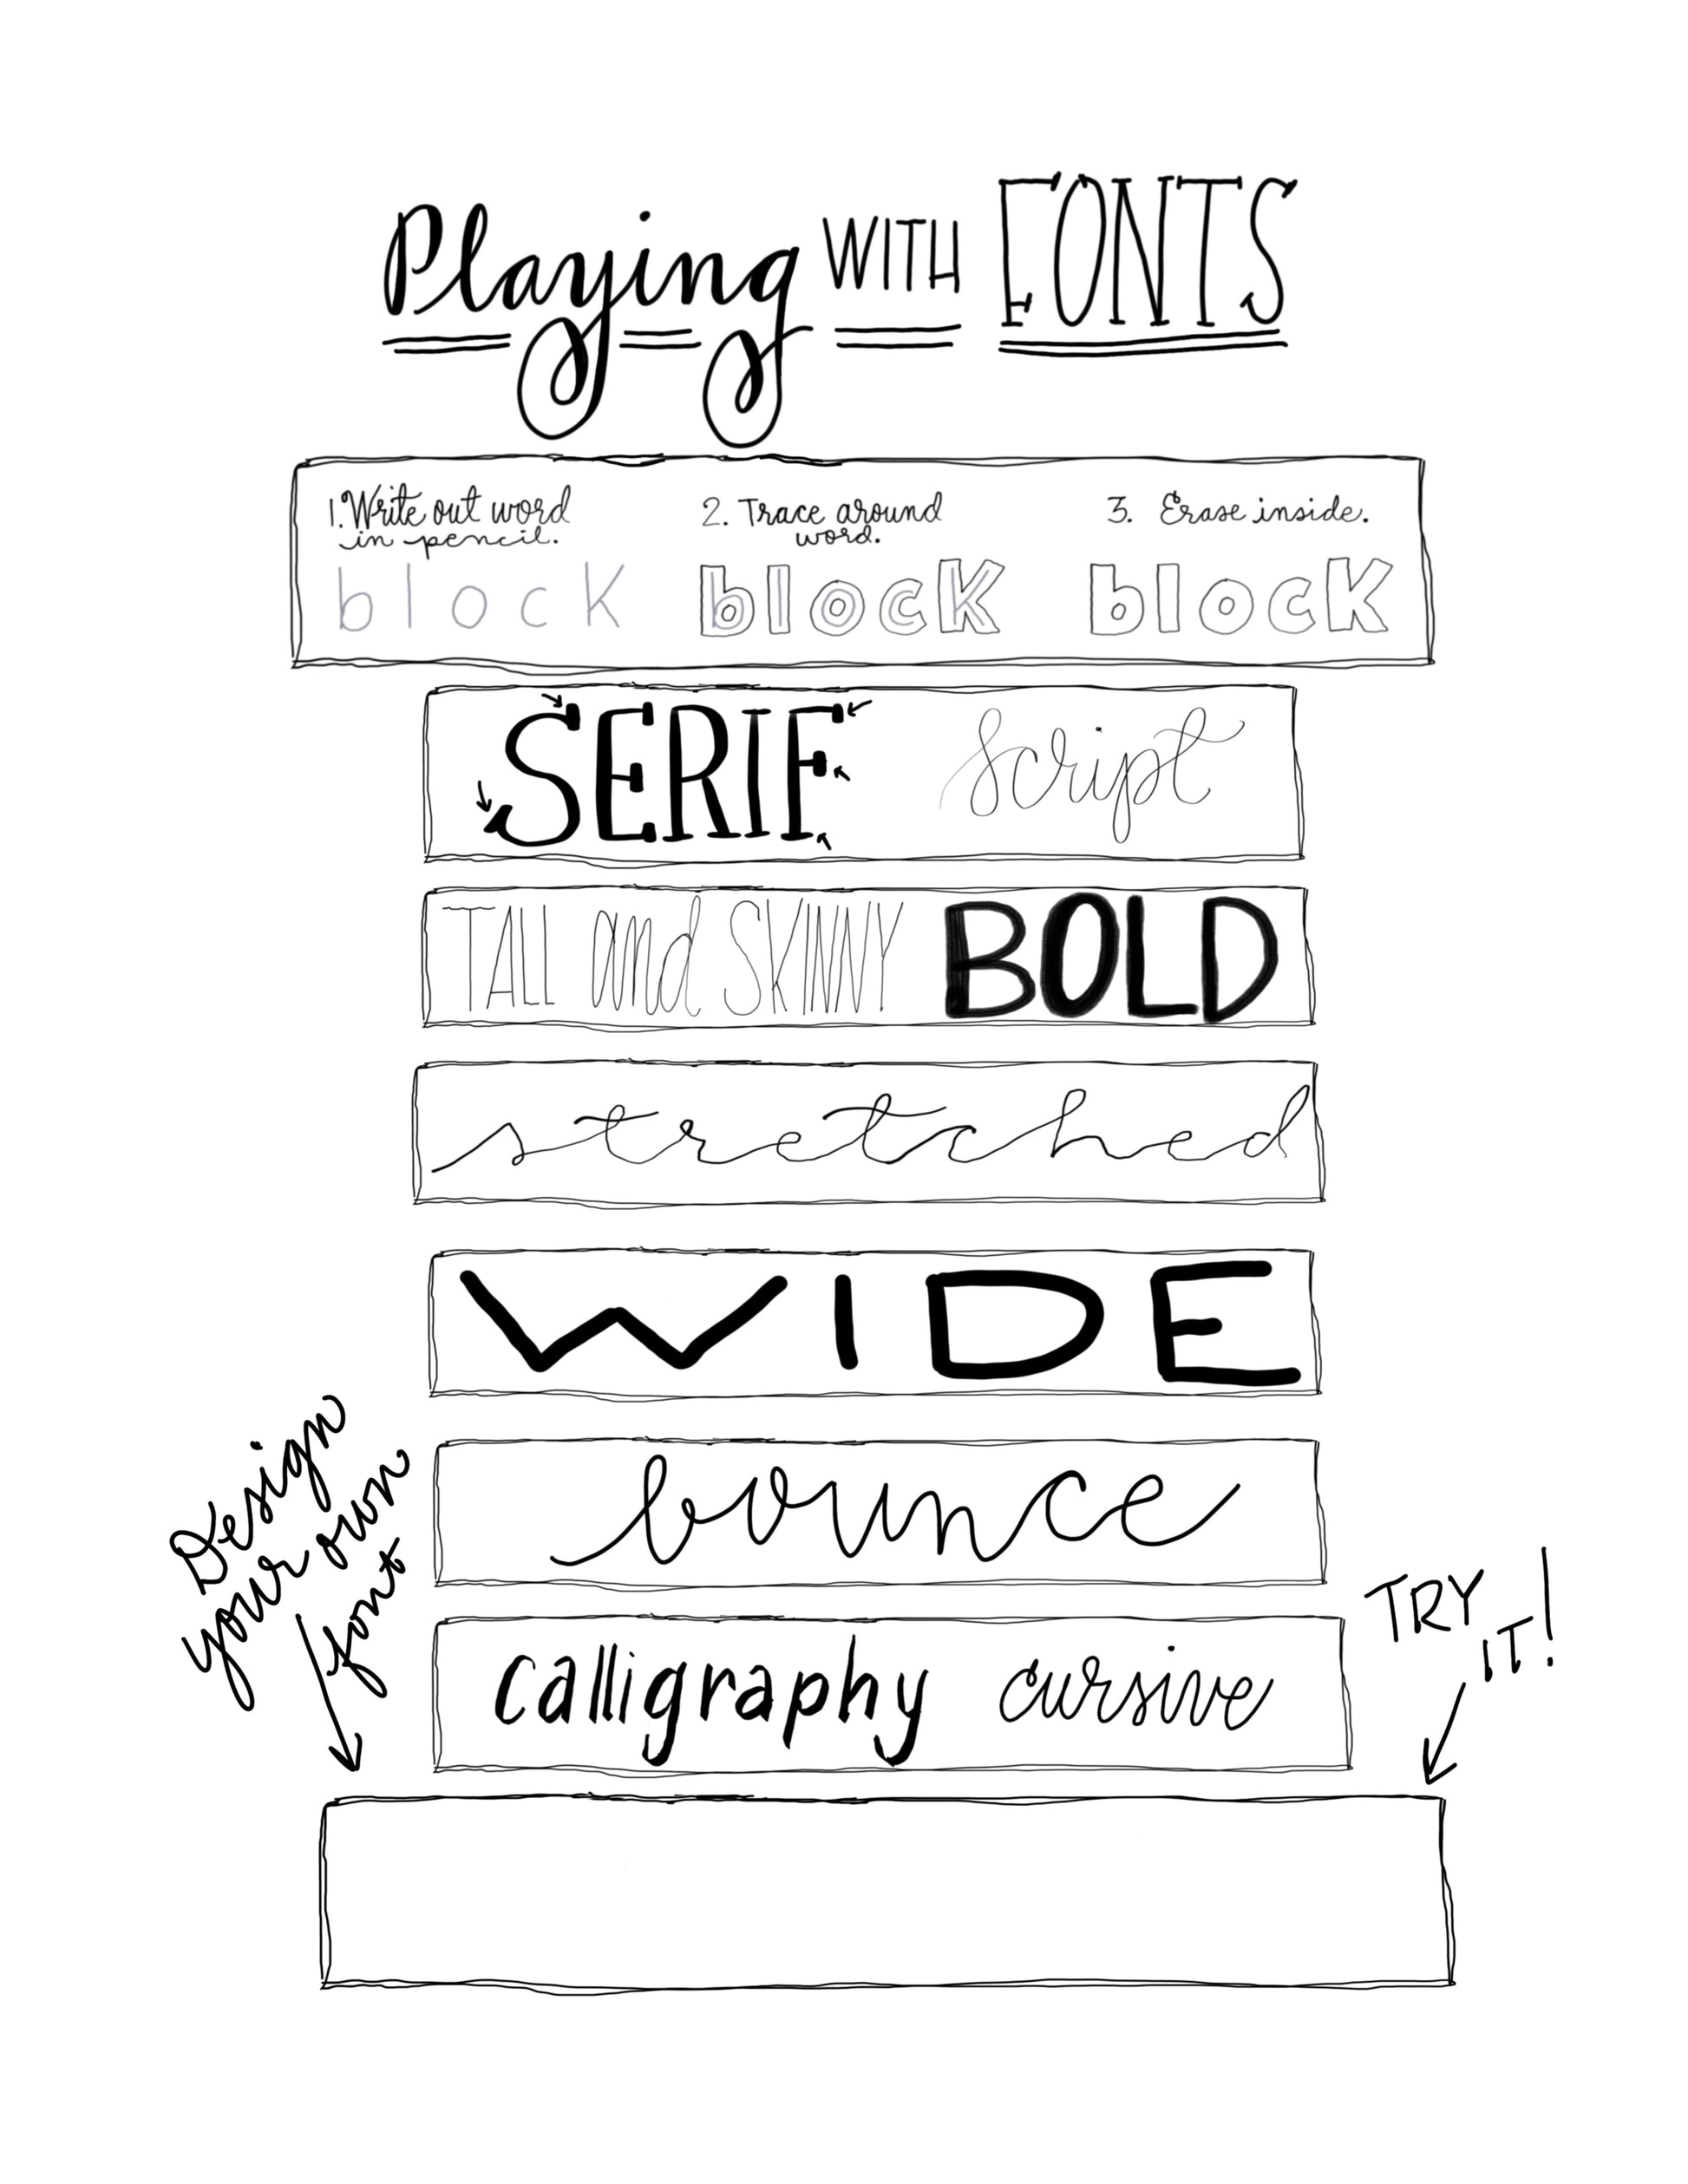 Playing WITH FONTS
1. Write out word
in pencil.
block
2. Trace around
word.
block
3. Erase inside.
block
SERIF script
TALL and SKINNY BOLD
stretched
WIDE
bounce
calligraphy cursive
Design
your own
font
TRY
IT!